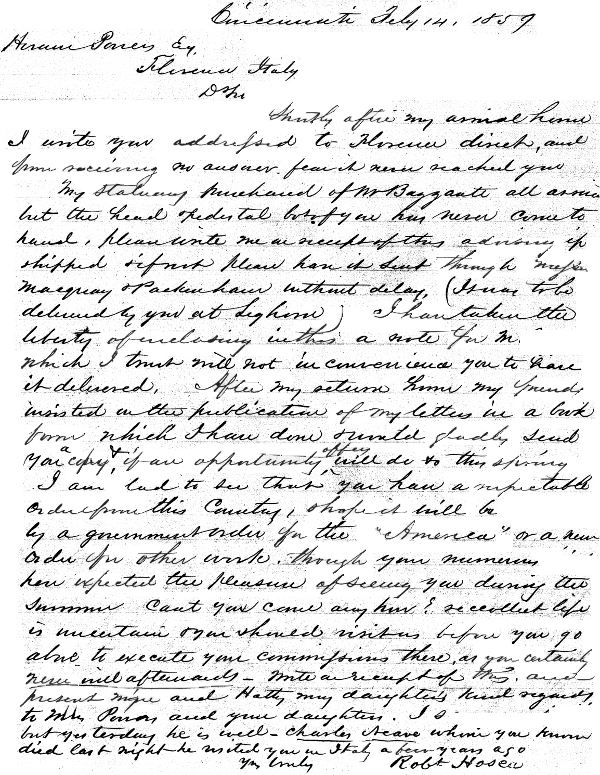 Cincinnati Feby 14, 1859
Hiram Powers Esq
Florence Italy
D Sir
Shortly after my arrival home
I write you addressed to Florence direct, and
from receiving no answer fear it never reached you
My statuary purchased of Mr Bazzanti all arrived
but the head & pedestal bot of you has never come to
hand, please write me on receipt of this advising if
shipped & if not please have it sent through Messrs
Macquay & Packenham without delay, (It was to be
delivered by you at Leghorn) I have taken the
liberty of enclosing in this a note for M.
which I trust will not inconvenience you to have
it delivered. After my return home my friends
insisted on the publication of my letters in a book
form which I have done & would gladly send
you a copy & if an opportunity offers will do so this spring
I am glad to see that you have a respectable
order from this Country, & hope it will be
by a government order for the "America" or a new
order for other work, though your numerous
here expected the pleasure of seeing you during the
Summer Cant you come any how? reccollect life
is uncertain & you should visit us before you go
above to execute your commissions there, as you certainly
never will afterwards - Write on receipt of this, and
present mine and Hatty my daughters kind regards
to Mrs Powers and your daughters. I S
but yesterday he is well - Charles Neave whom you knew
died last night he visited you in Italy a few years ago
Yrs truly Robt Hosea